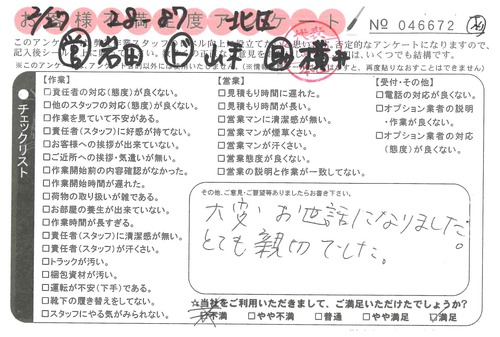 お客様満足度アンケート
2/27 28-87 北区
No 046672
岩田
【作業】
□責任者の対応(態度)が良くない。
□他のスタッフの対応(態度)が良くない。
□作業を見ていて不安がある。
□責任者(スタッフ)に好感が持てない。
□お客様への挨拶が出来ていない。
□ご近所への挨拶・気遣いが無い。
□作業開始前の内容確認がなかった。
□作業開始時間が遅れた。
□荷物の取り扱いが雑である。
□お部屋の養生が出来ていない。
□作業時間が長すぎる。
□責任者(スタッフ)に清潔感が無い。
□責任者(スタッフ)が汗くさい。
□トラックが汚い。
□梱包資材が汚い。
□運転が不安(下手)である。
□靴下の履き替えをしてない。
□スタッフにやる気がみられない。
【営業】
□見積もりに遅れた。
□見積もり時間が長い。
□営業マンに清潔感が無い。
□営業マンが煙草くさい。
□営業マンが汗くさい。
□営業態度が良くない。
□営業の説明と作業が一致してない。
【受付・その他】
□電話の対応が良くない。
□オプション業者の説明
・作業が良くない。
□オプション業者の対応
(態度)が良くない。
チェックリスト
その他、ご意見・ご要望等ありましたらお書き下さい。
大変お世話になりました。
とても親切でした。
☆当社をご利用いただきまして、ご満足いただけてしょうか?
□不満 □やや不満 □普通 □やや満足 □満足